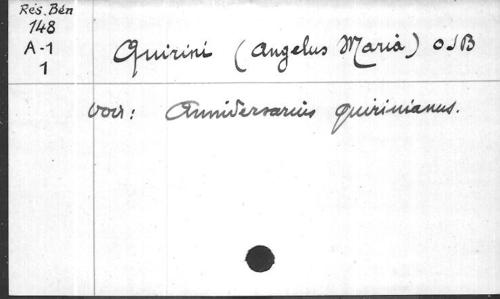 Rés. Bén
148
A-1
1
Quirini (Angelus Maria) OSB
Voir: Anniversarius quirinianus.